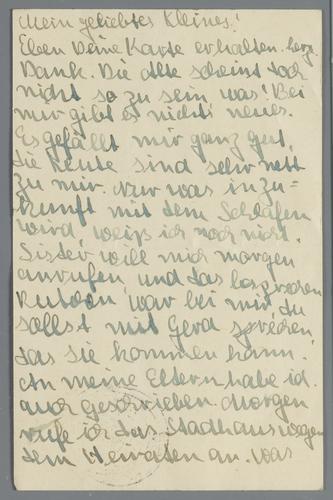 Mein geliebtes Kleines!
Eben Deine Karte erhalten. herz.
Dank. Die Alte scheint doch
nicht so zu sein was! Bei
mir gibt es nichts neues.
Es gefällt mir ganz gut,
die Leute sind sehr nett
zu mir. Nur was in zu-
kunft mit dem Schlafen
wird, weiss ich noch nicht.
Sister will mich morgen
anrufen, und das
war bei mir. Du
sollst mit Gerd sprechen
das sie kommen kann.
An meine Eltern habe ich
auch geschrieben. Morgen
rufe ich das Stadhaus wegen
dem Heiraten an. Was